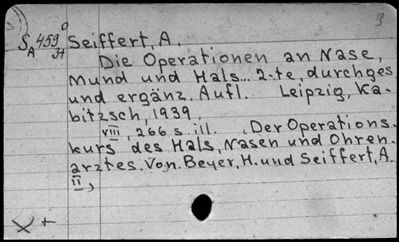 3
S 459 0 Seiffert, A.
A 3t
Die Operationen an Nase,
Mund und Hals... 2-te, durchges
und ergänz. Aufl. Leipzig, Ka-
bitzsch, 1939.
VIII, 266 s. ill. (Der Operations-
kurs des Hals, Nasen und Ohren-
arztes. Von Beyer, H. und Seiffert, A.
II,